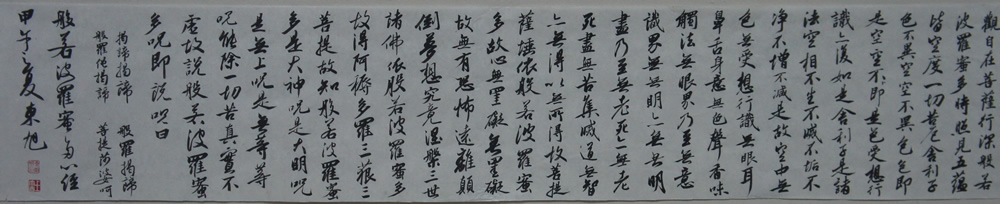 觀自在菩薩行深般若
波羅蜜多時照見五蘊
皆空度一切苦厄舍利子
色不異空空不異色色即
是空空不即是色受想行
識亦復如是舍利子是諸
法空相不生不滅不垢不
净不增不減是故空中無
色無受想行識無眼耳
鼻舌身意無色聲香味
觸法無眼界乃至無意
識界無無明亦無無明
盡乃至無老死亦無老
死盡無苦集滅道無智
亦無得以無所得故菩提
薩埵依般若波羅蜜
多故心無罣礙無罣礙
故無有恐怖遠離顛
倒夢想究竟涅槃三世
諸佛依般若波羅蜜多
故得阿耨多羅三藐三
菩提故知般若波羅蜜
多是大神呪是大明呪
是無上呪是無等等
呪能除一切苦真實不
虛故說般若波羅蜜
多呪即說呪曰
揭諦揭諦 般羅揭諦
般羅僧揭諦 菩提薩婆呵
般若波羅蜜多心經
甲午之夏東旭